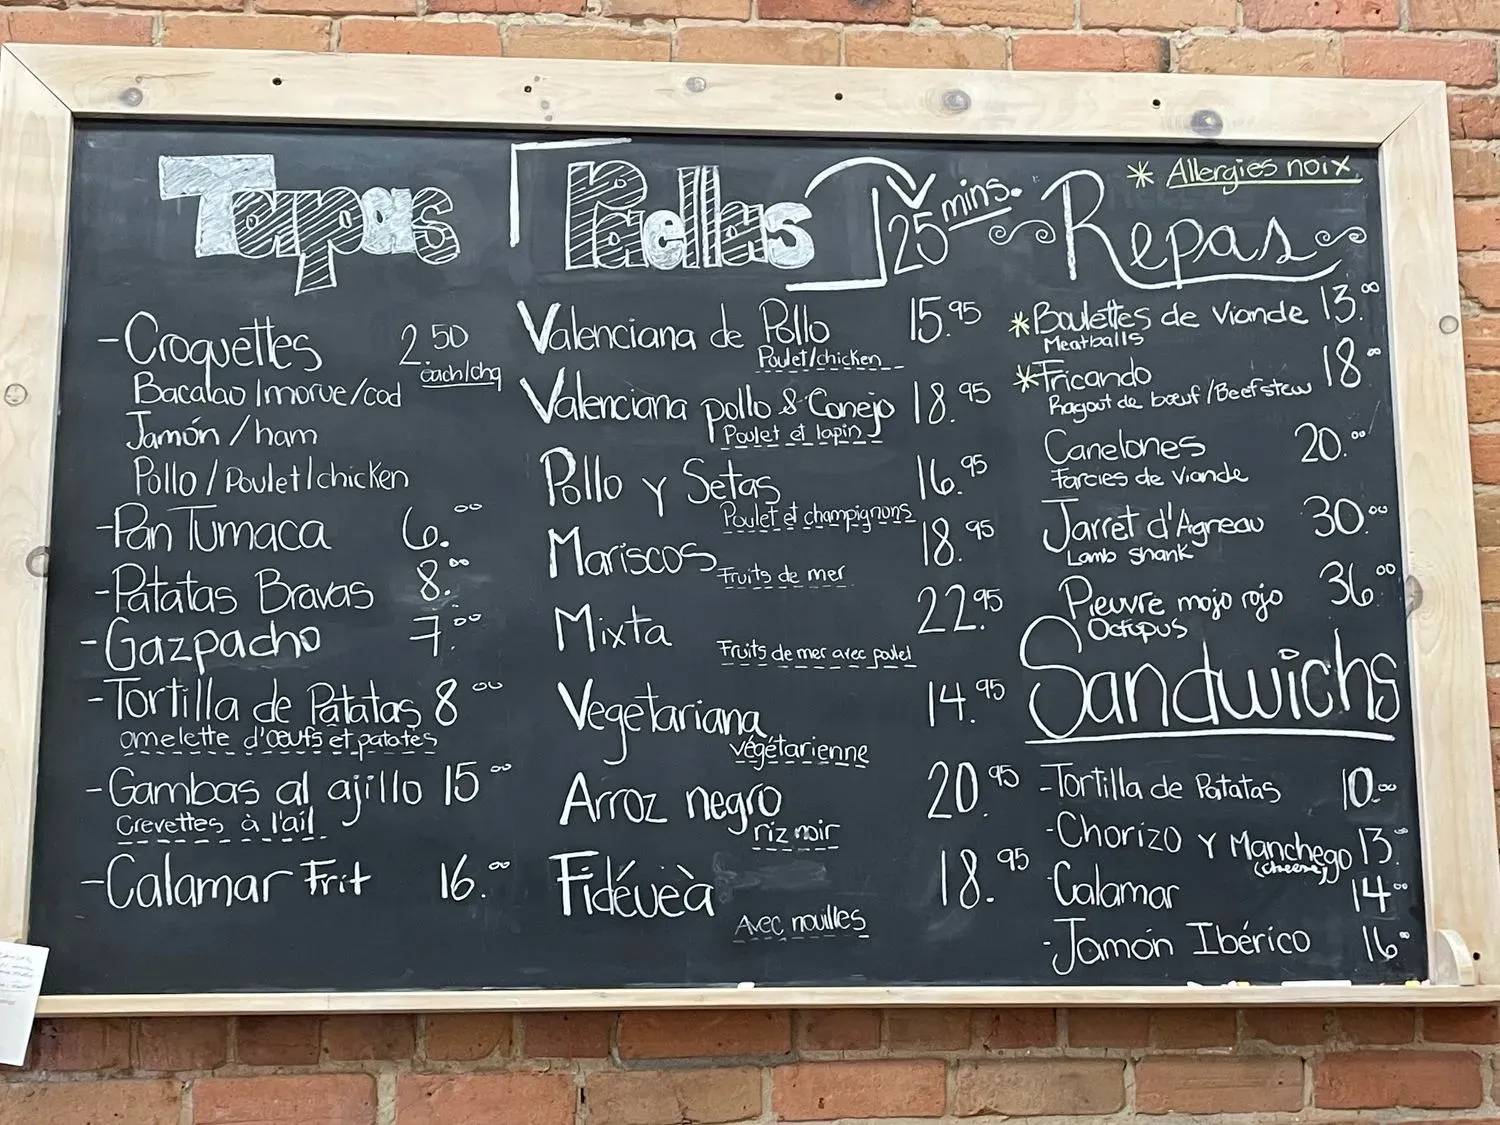 Tapas
-Croquettes 2.50
each/chq
Bacalao/morue/cod
Jamón/ham
Pollo/Poulet/chicken
-Pan Tumaca 6.00
-Patatas Bravas 8.00
-Gazpacho 7.00
-Tortilla de Patatas 8.00
omelette d'œufs et patates
-Gambas al ajillo 15.00
Crevettes à l'ail
-Calamar Frit 16.00
Paellas 25 mins.
Valenciana de Pollo 15.95
Poulet/chicken
Valenciana pollo & Conejo 18.95
Poulet et lapin
Pollo y Setas 16.95
Poulet et champignons
Mariscos 18.95
Fruits de mer
Mixta 22.95
Fruits de mer avec poulet
Vegetariana 14.95
végétarienne
Arroz negro 20.95
riz noir
Fidéueà 18.95
Avec nouilles
* Allergies noix
Repas
*Boulettes de Viande 13.00
Meatballs
*Fricando 18.00
Ragout de bœuf/Beef stew
Canelones 20.00
Farcies de Viande
Jarret d'Agneau 30.00
Lamb Shank
Pieuvre mojo rojo 36.00
Octopus
Sandwichs
-Tortilla de Patatas 10.00
-Chorizo y Manchego 13.00
(cheese)
-Calamar 14.00
-Jamón Ibérico 16.00